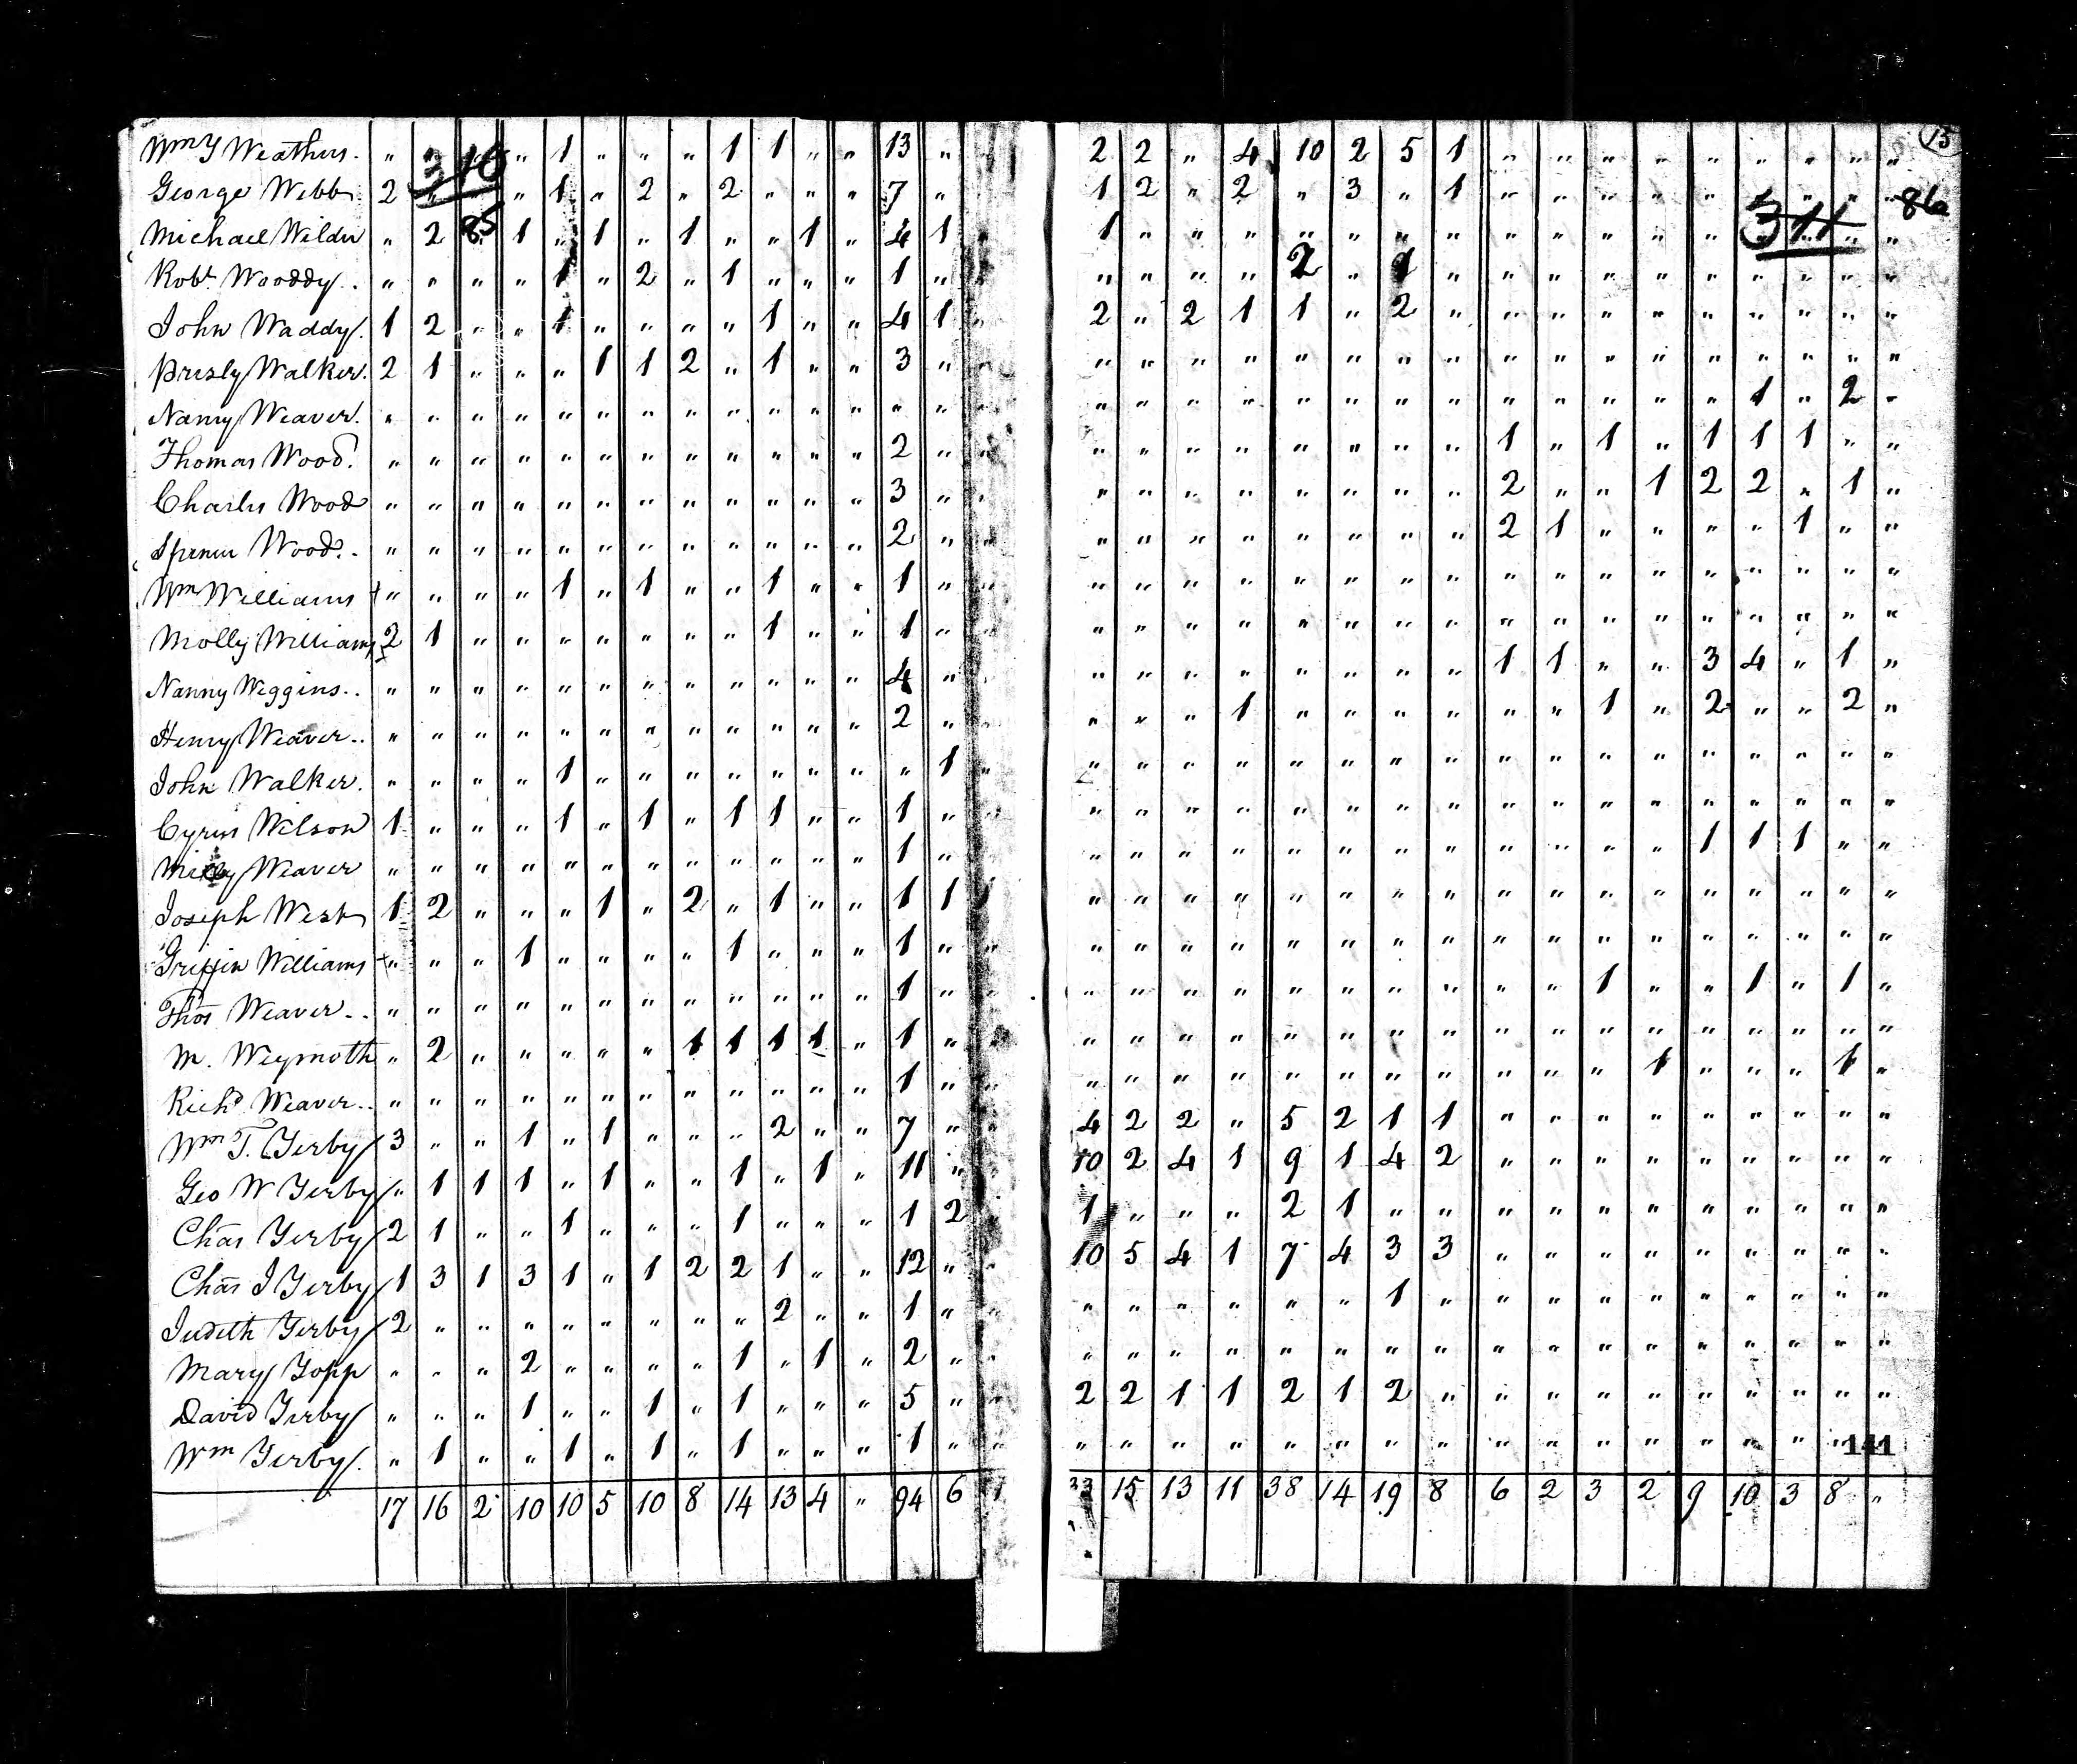 15
310
85
311
86
Wm Y Weathers. " " " " 1 " " " 1 1 " " 13 " 2 2 " 4 10 2 5 1 " " " " " " " " "
George Webb. 2 " " " 1 " 2 " 2 " " " 7 " 1 2 " 2 " 3 " 1 " " " " " " " " "
Michael Wilder " 2 " 1 " 1 " 1 " " 1 " 4 1 " 1 " " " " " " " " " " " " " " " "
Robt. Wooddy. " " " " 1 " 2 " 1 " " " 1 " " " " " 2 " 1 " " " " " " " " " "
John Waddy. 1 2 " " 1 " " " " 1 " " 4 1 " 2 " 2 1 1 " 2 " " " " " " " " " "
Presly Walker. 2 1 " " " 1 1 2 " 1 " " 3 " " " " " " " " " " " " " " " " " "
Nancy Weaver. " " " " " " " " " " " " " " " " " " " " " " " " " " " 1 " 2 "
Thomas Wood. " " " " " " " " " " " " 2 " " " " " " " " " " 1 " 1 " 1 1 1 " "
Charles Wood " " " " " " " " " " " " 3 " " " " " " " " " " 2 " " 1 2 2 " 1 "
Spencer Wood. " " " " " " " " " " " " 2 " " " " " " " " " " 2 1 " " " " 1 " "
Wm Williams + " " " " 1 " 1 " " 1 " " 1 " " " " " " " " " " " " " " " " " "
Molly Williams x 2 1 " " " " " " " 1 " " 1 " " " " " " " " " " " " " " " " " "
Nanny Wiggins.. " " " " " " " " " " " " 4 " " " " " " " " " 1 1 " " 3 4 " 1 "
Henry Weaver.. " " " " " " " " " " " " 2 " " " " 1 " " " " " " 1 " 2 " " 2 "
John Walker. " " " " 1 " " " " " " " " 1 " " " " " " " " " " " " " " " " " "
Cyrus Wilson 1 " " " 1 " 1 " 1 1 " " 1 " " " " " " " " " " " " " " " " " "
Weaver " " " " " " " " " " " " 1 " " " " " " " " " " " " " 1 1 1 " "
Joseph West 1 2 " " " 1 " 2 " 1 " " 1 1 1 " " " " " " " " " " " " " " " " "
Griffin Williams + " " " 1 " " " " 1 " " " 1 " " " " " " " " " " " " " " " " " "
Thos Weaver.. " " " " " " " " " " " " 1 " " " " " " " " " " " " 1 " " 1 " 1 "
M. Weymoth " 2 " " " " " 1 1 1 1 " 1 " " " " " " " " " " " " " " " " " "
Richd Weaver.. " " " " " " " " " " " " 1 " " " " " " " " " " " " " 1 " " " 1 "
Wm T. Yerby 3 " " 1 " 1 " " " 2 " " 7 " 4 2 2 " 5 2 1 1 " " " " " " " " "
Geo W Yerby " 1 1 1 " 1 " " 1 " 1 " 11 " 10 2 4 1 9 1 4 2 " " " " " " " " "
Chas Yerby 2 1 " " 1 " " " 1 " " " 1 2 1 " " " 2 1 " " " " " " " " " " "
Chas I Yerby 1 3 1 3 1 " 1 2 2 1 " " 12 " " 10 5 4 1 7 4 3 3 " " " " " " " " "
Judith Yerby 2 " " " " " " " " 2 " " 1 " " " " " " " " 1 " " " " " " " " " "
Mary Yopp " " " 2 " " " " 1 " 1 " 2 " " " " " " " " " " " " " " " " " " "
David Yerby " " " 1 " " 1 " 1 " " " 5 " " 2 2 1 1 2 1 2 " " " " " " " " " "
Wm Yerby. " 1 " " 1 " 1 " 1 " " " 1 " " " " " " " " " " " " " " " " " " "
141
17 16 2 10 10 5 10 8 14 13 4 " 94 6 1 33 15 13 11 38 14 19 8 6 2 3 2 9 10 3 8 "